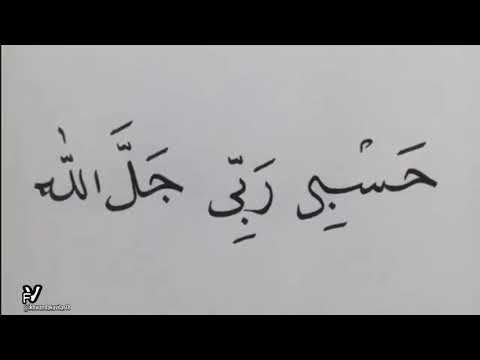 حَسْبِي رَبِّي جَلَّ اللّٰه